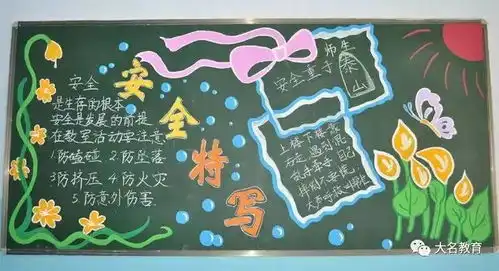 安全
是生存的根本
安全是发展的前提
在教室活动要注意
1防磕碰 2.防坠落
3防挤压 4.防火灾
5.防意外伤害
安全特写
师生
安全重于
泰山
上楼下楼靠
右走遇到混
手牵手
大名教育